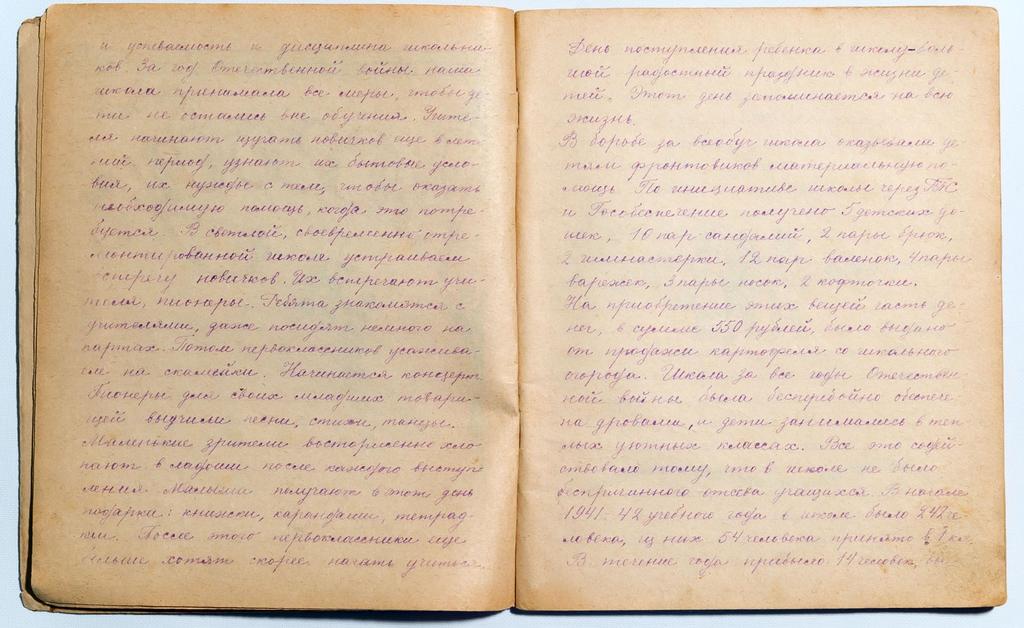 и успеваемость и дисциплина школьни-
ков. За год Отечественной войны наша
школа принимала все меры, чтобы де-
ти не остались вне обучения. Учите-
ля начинают изучать новичков еще в лет-
ний период, узнают их бытовые усло-
вия, их нужды с тем, чтобы оказать
необходимую помощь, когда это потре-
буется. В светлой, своевременно отре-
монтированной школе устраиваем
встречу новичков. Их встречают учи-
теля, пионеры. Ребята знакомятся с
учителями, даже посидят немного на
партах. Потом первоклассников усажива-
ем на скамейки. Начинается концерт.
Пионеры для своих младших товари-
щей выучили песни, стихи, танцы.
Маленькие зрители восторженно хло-
пают в ладоши после каждого выступ-
ления. Малыши получают в этот день
подарки: книжки, карандаши, тетрад-
ки. После этого первоклассники еще
больше хотят скорее начать учиться.
День поступления ребенка в школу-боль-
шой радостный праздник в жизни де-
тей. Этот день запоминается на всю
жизнь.
В борьбе за всеобуч школа оказывала де-
тям фронтовиков материальную по-
мощь. По инициативе школы через
и Гособеспечение получено 5 детских до-
шек, 10 пар сандалий, 2 пары брюк,
2 гимнастерки, 12 пар валенок, 4 пары
варежек, 3 пары носок, 2 кофточки.
На приобретение этих вещей часть де-
нег, в сумме 550 рублей, было выдано
от продажи картофеля со школьного
огорода. Школа за все годы Отечествен-
ной войны была бесперебойно обеспече-
на дровами, и дети занимались в теп-
лых уютных классах. Все это содей-
ствовало тому, что в школе не было
беспричинного отсева учащихся. В начале
1941-42 учебного года в школе было 242 че-
ловека, из них 54 человека принято в 1 кл.
В течение года прибыло 14 человек, вы-